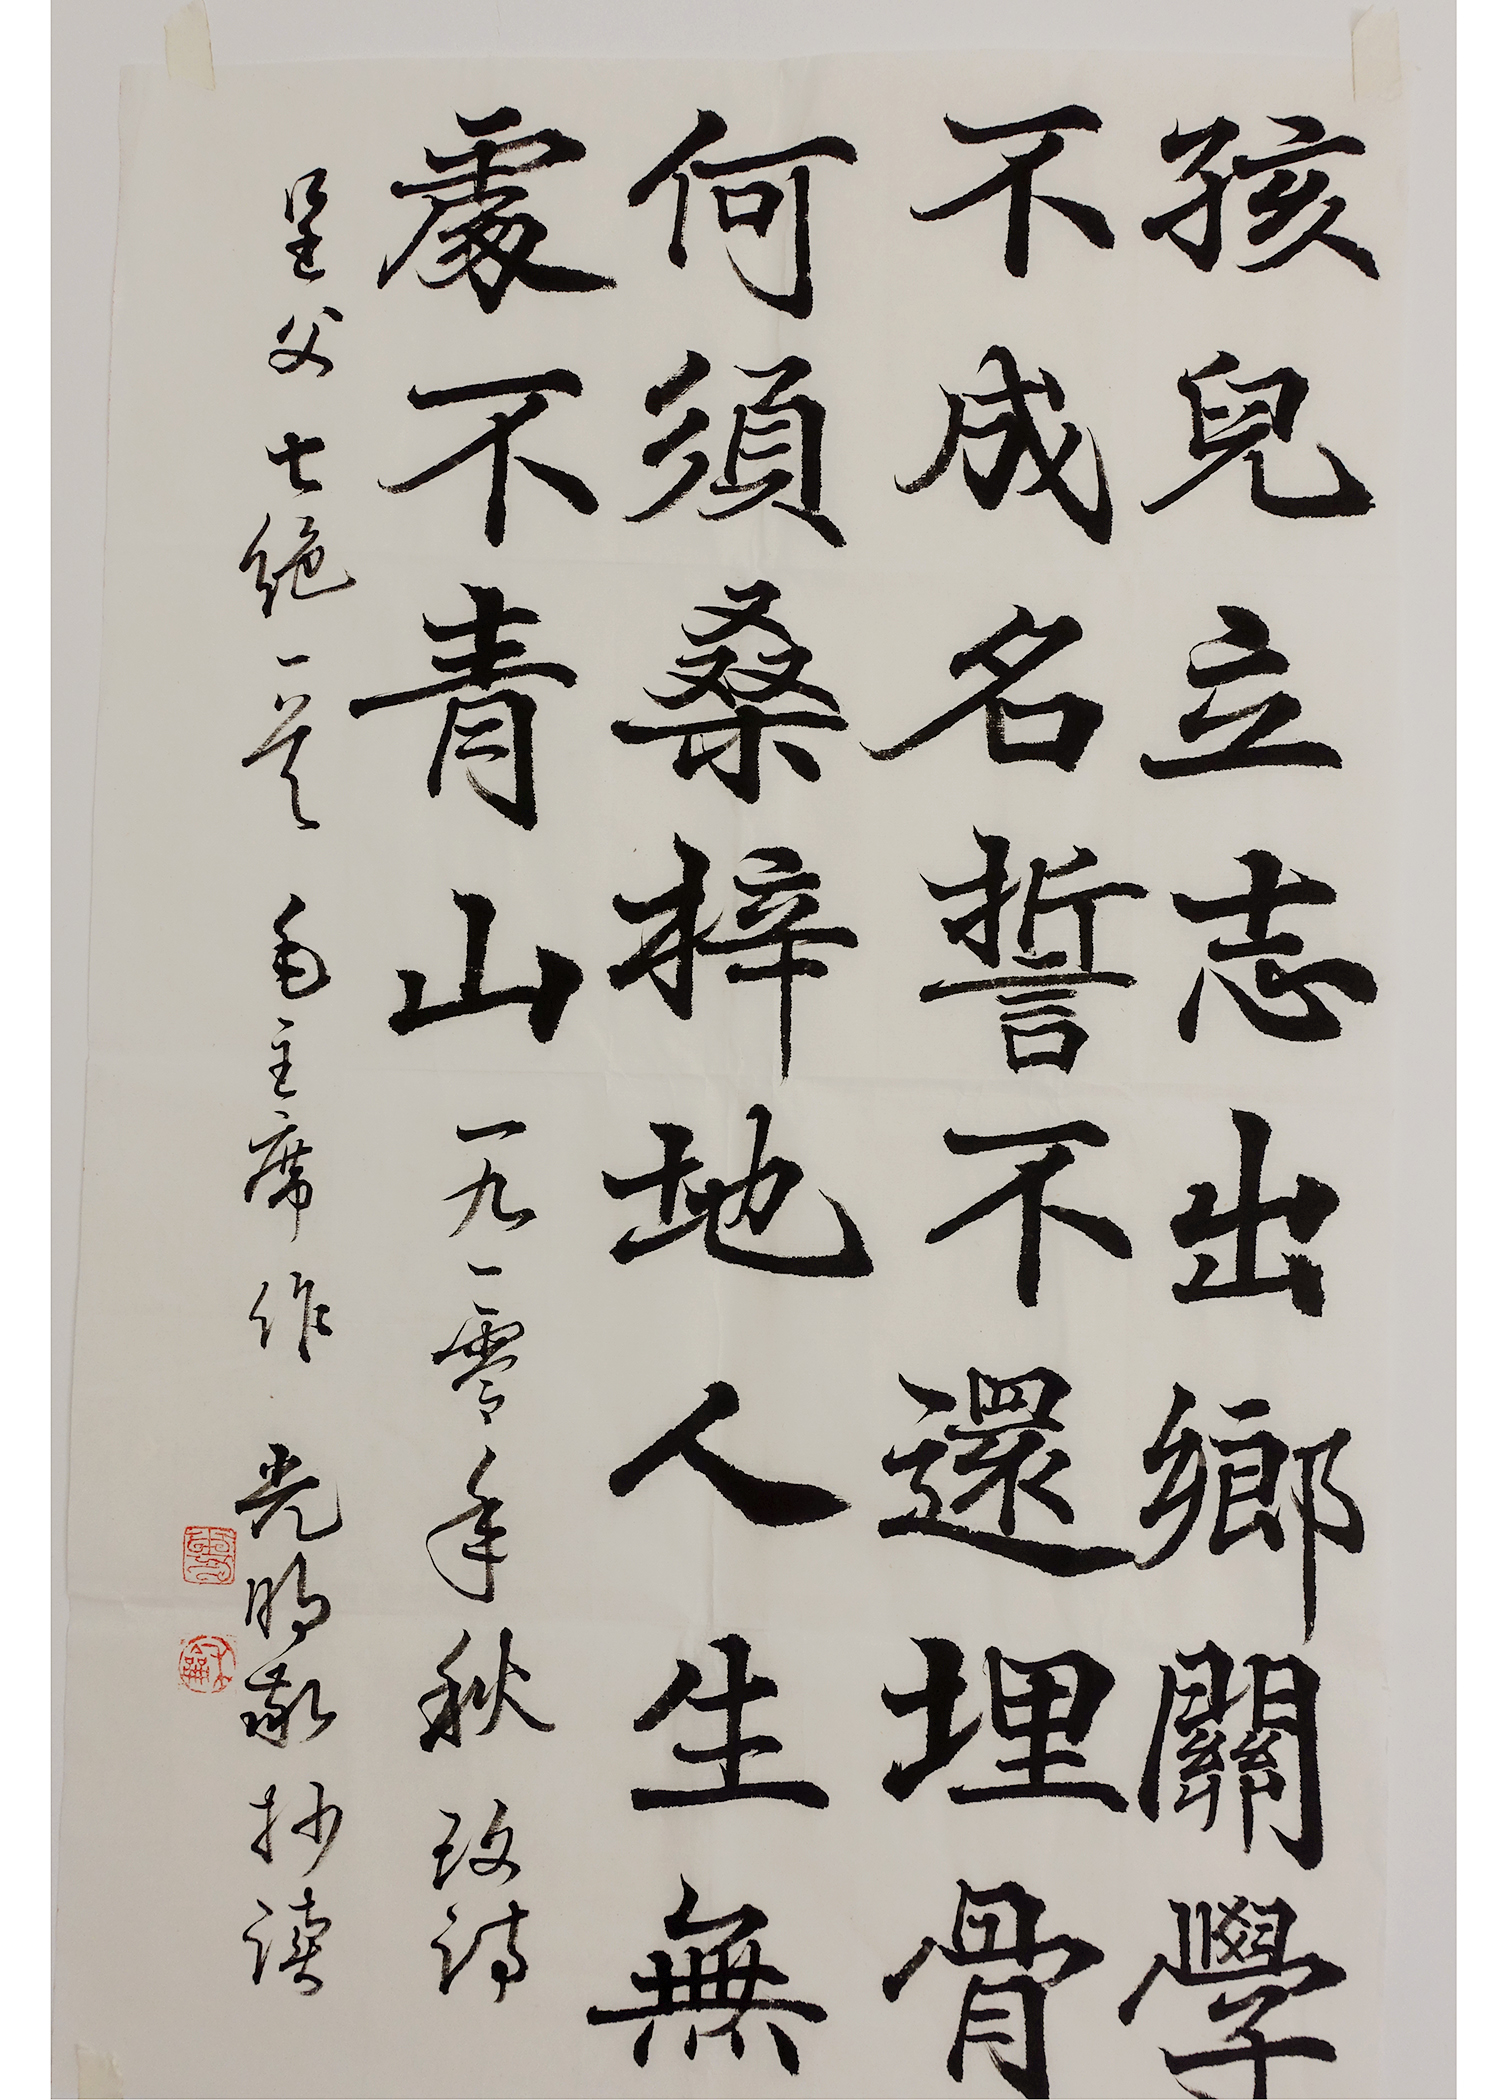 孩兒立志出鄉關學
不成名誓不還埋骨
何須桑梓地人生無
處不青山一九一零年秋改詩
呈父七绝一首毛主席作光明敬抄读